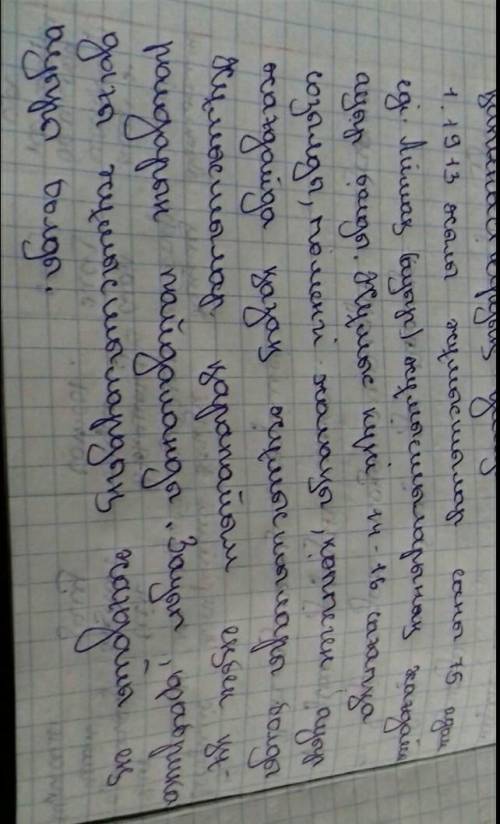 1. 1913 жылы жұмысшылар саны 75 адам
еді. Аймақ (ауыр) жұмысшыларының жағдайы
ауыр болды. Жұмыс күні 14-16 сағатқа
созылды, төменгі жалақы, көптеген ауыр
жағдайда қазақ жұмысшылары болды
Жұмысшылар қарапайым еңбек құ-
ралдарын пайдаланды. Зауыт, фабрика
дағы жұмысшылардың жағдайы ең
ауыры болды.